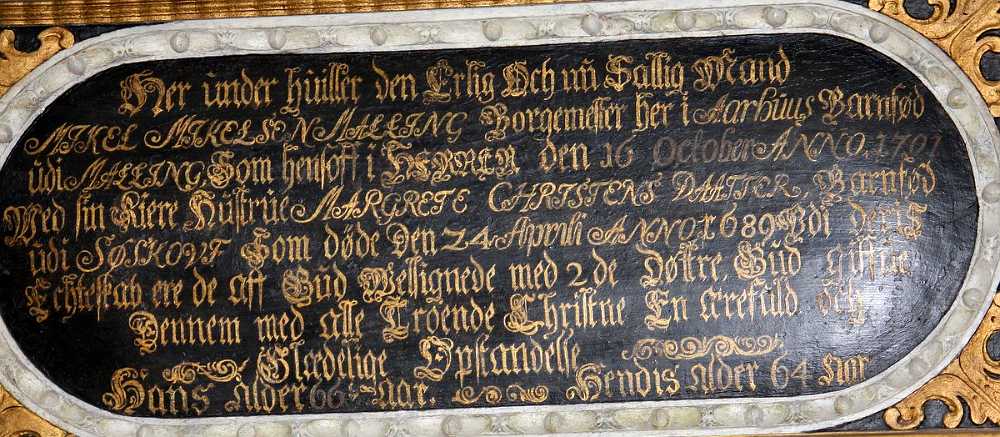 Her under huiler den Erlig Och nu Sallig Mand
MIKEL MIKELSØN MALLING Borgemester her i Aarhuus Barnfød
udi MALLING Som hensoff i HERREN den 16 October ANNO 1701
Med sin Kiere Hustrue MARGRETE CHRISTENS DAATTER Barnfød
udi SØLSKOUF Som døde Den 24 Aprili ANNO 1689 Udi deris
Echteskab ere de aff Gud Welsignede med 2 de Døttre Gud giffue
Dennem med alle Troende Christne En Ærefuld och
Glædelige Opstandelse
Hans alder 66 aar. Hendis alder 64 aar